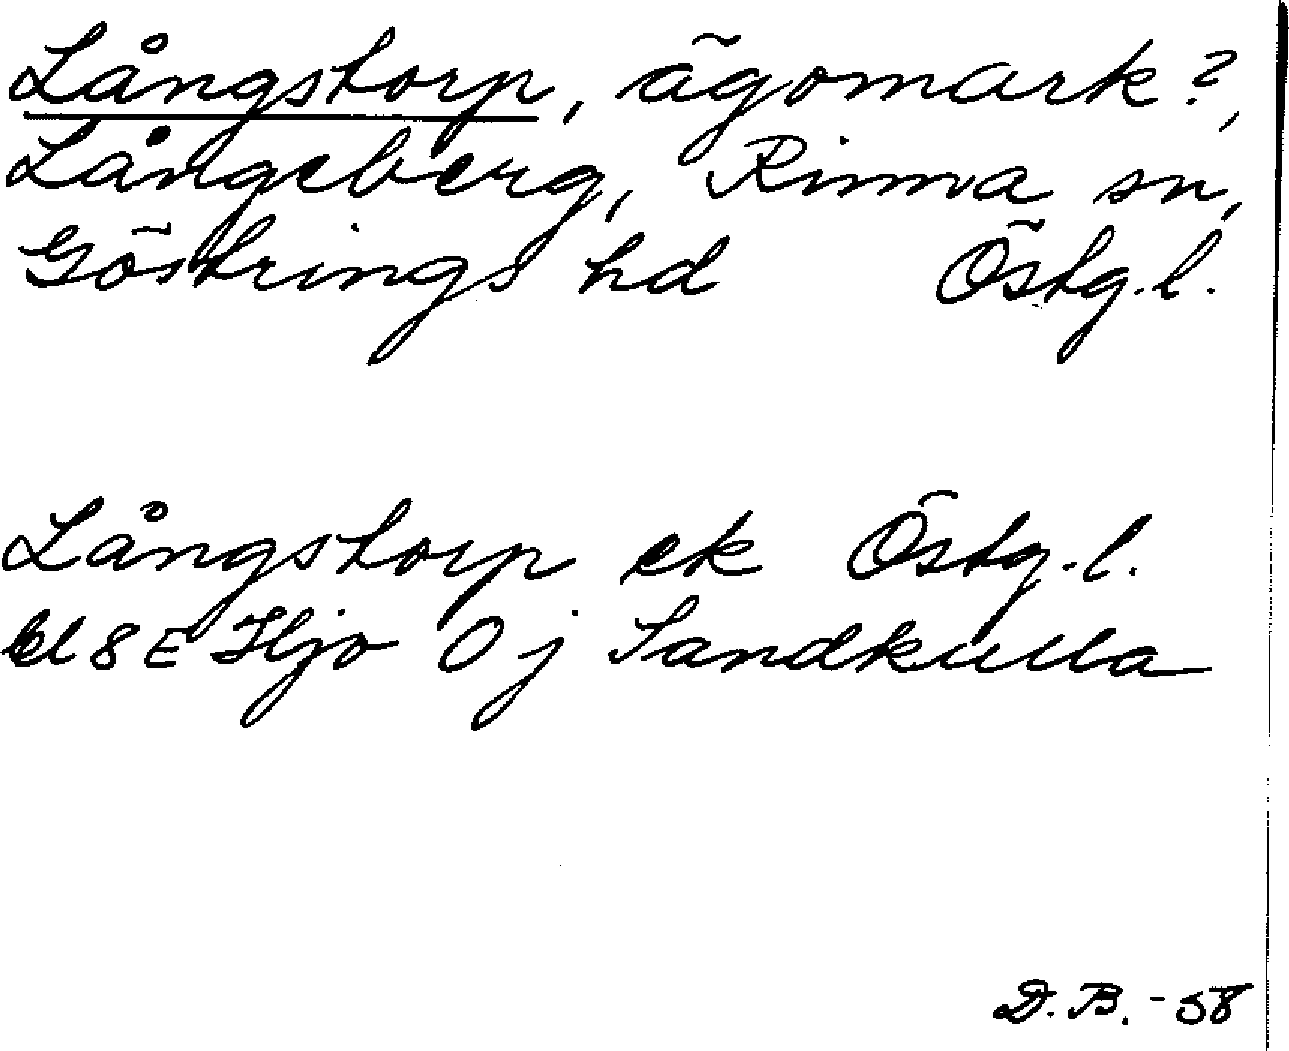 Långstorp, ägomark?,
Långeberg, Rinna sn,
Göstrings hd Östg.l.
Långstorp ek Östg.l.
bl 8E Hjo 0j Sandkulla
D.B. -58